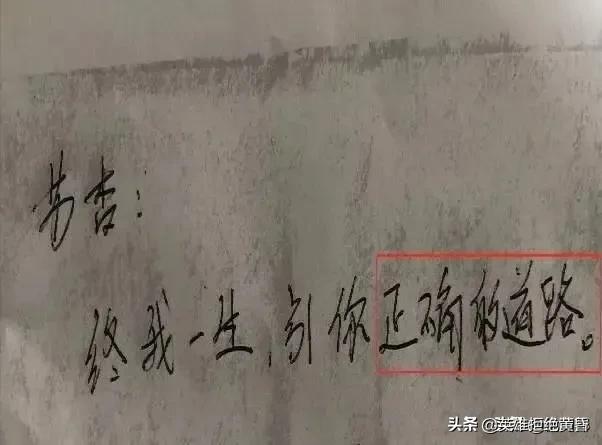 终我一生，引你正确的道路。
头条 @英雄拒绝黄昏